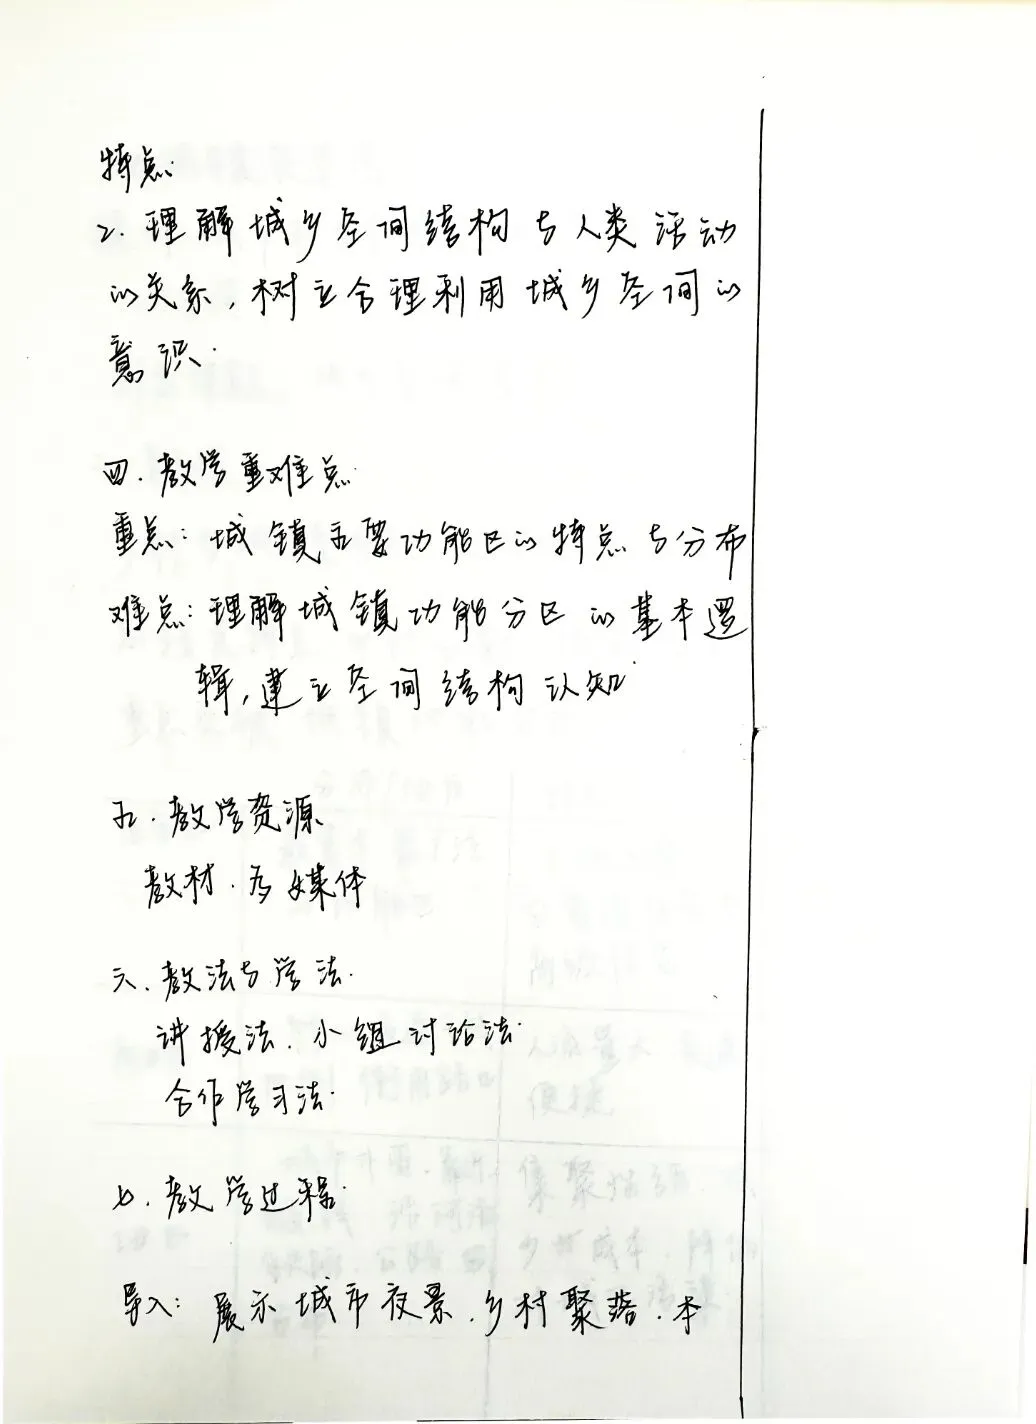 特点.
2. 理解城乡空间结构与人类活动
的关系,树立合理利用城乡空间的
意识.
四.教学重难点.
重点:城镇主要功能区的特点与分布
难点:理解城镇功能分区的基本逻
辑,建立空间结构认知.
五.教学资源
教材.多媒体
六.教法与学法.
讲授法.小组讨论法.
合作学习法.
七.教学过程.
导入:展示城市夜景.乡村聚落.本